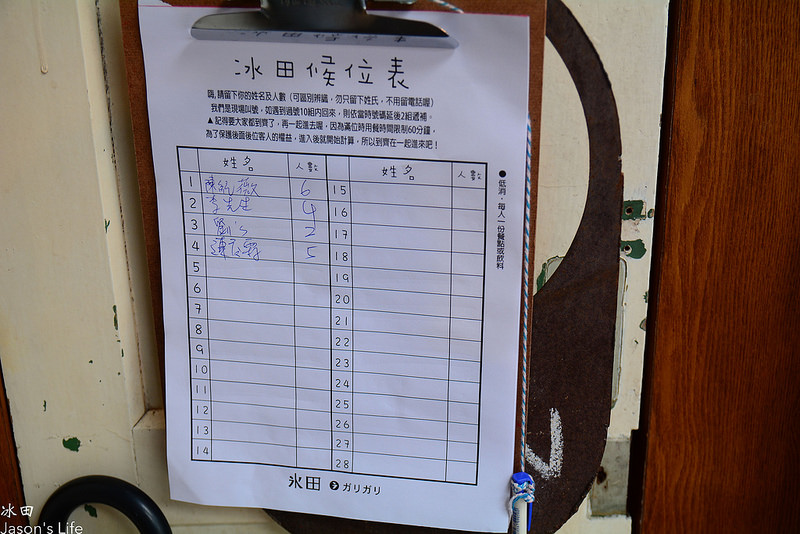 冰田候位表
嗨,請留下你的姓名及人數（可區別辨識，勿只留下姓氏，不用留電話喔）
我們是現場叫號，如遇到過號10組內回來，則依當時號碼延後2組遞補。
▲記得要大家都到齊了，再一起進去喔，因為滿位時用餐時間限制60分鐘，
為了保護後面後位客人的權益，進入後就開始計算，所以到齊在一起進來吧！
姓名 人數 姓名 人數
1 陳 6 15
2 李先生 4 16
3 劉 2 17
4 陳 5 18
5 19
6 20
7 21
8 22
9 23
10 24
11 25
12 26
13 27
14 28
●低消．每人一份餐點或飲料
冰田 ガリガリ
冰田
Jason's Life